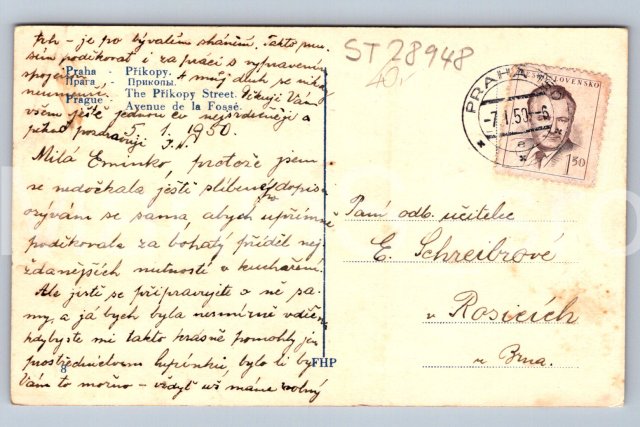 ST 28948
40,-
prh - je po bývalém shánění. Takto mu-
sím poděkovat i za práci s vypravením
spojenou. A můj dík se nikdy
neumenší. Děkuji Vám
všem ještě jednou co nejsrdečněji a
pěkně pozdravuji J.N.
5. 1. 1950.
Praha - Příkopy.
Прага - Прикопы.
Prague - The Příkopy Street.
Avenue de la Fossé.
Milá Eminko, protože jsem
se nedočkala ještě slíbeného dopisu
ozývám se sama, abych upřímně
poděkovala za bohatý příděl nej
žádanějších nutností v kuchaření.
Ale jistě se připravujete o ně sa-
my, a já bych byla nesmírně vděčna
kdybyste mi takto krásně pomohly jen
prostřednictvem lupénků, bylo li by
Vám to možno - vždyť už máme volný
8
FHP
PRAHA
-7.I.50.-6
ČESKOSLOVENSKO
1,50
Paní odb. učitelce
E. Schreibrové
v Rosicích
u Brna.